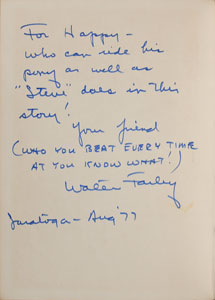 For Happy -
who can ride his
pony as well as
"Steve" does in this
story!
Your friend
(WHO YOU BEAT EVERY TIME
AT YOU KNOW WHAT!)
Walter Farley
Saratoga - Aug '77